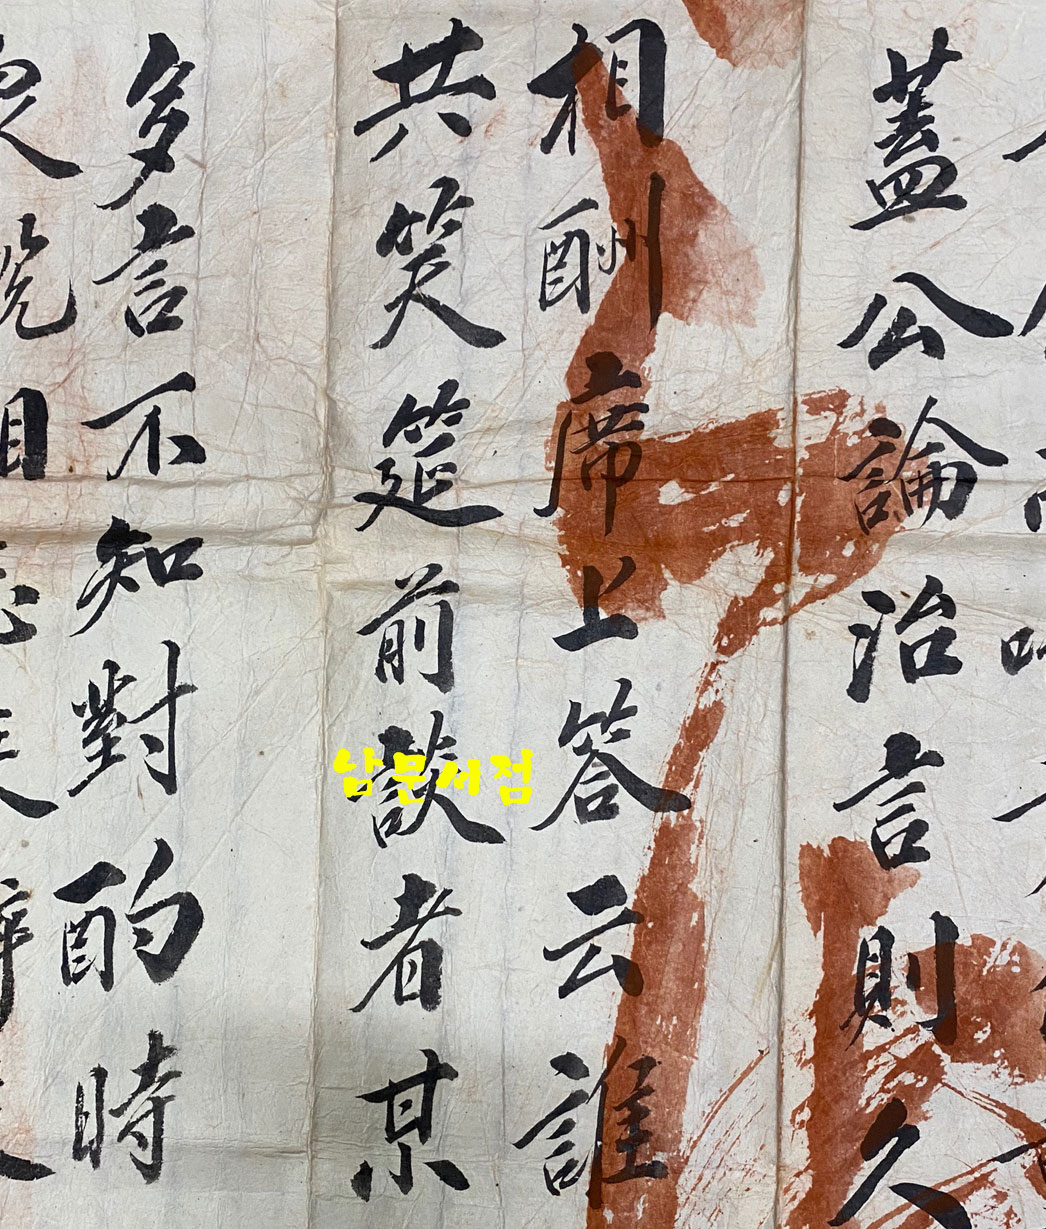 蓋公論治言則久
相酬席上答云誰
共笑筵前談者某
多言不知對酌時
남문서점